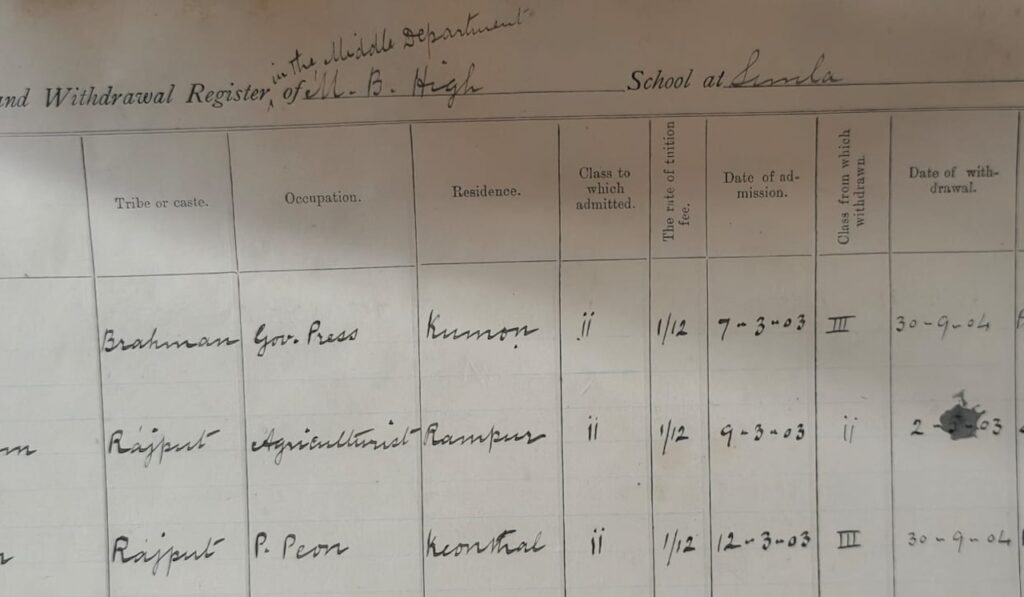 in the Middle Department
and Withdrawal Register, of M. B. High School at Simla
Tribe or caste. Occupation. Residence. Class to which admitted. The rate of tuition fee. Date of admission. Class from which withdrawn. Date of withdrawal.
Brahman Gov. Press Kumon ii 1/12 7-3-03 III 30-9-04
m Rajput Agriculturist Rampur ii 1/12 9-3-03 ii 2- -03
Rajput P. Peon Keonthal ii 1/12 12-3-03 III 30-9-04